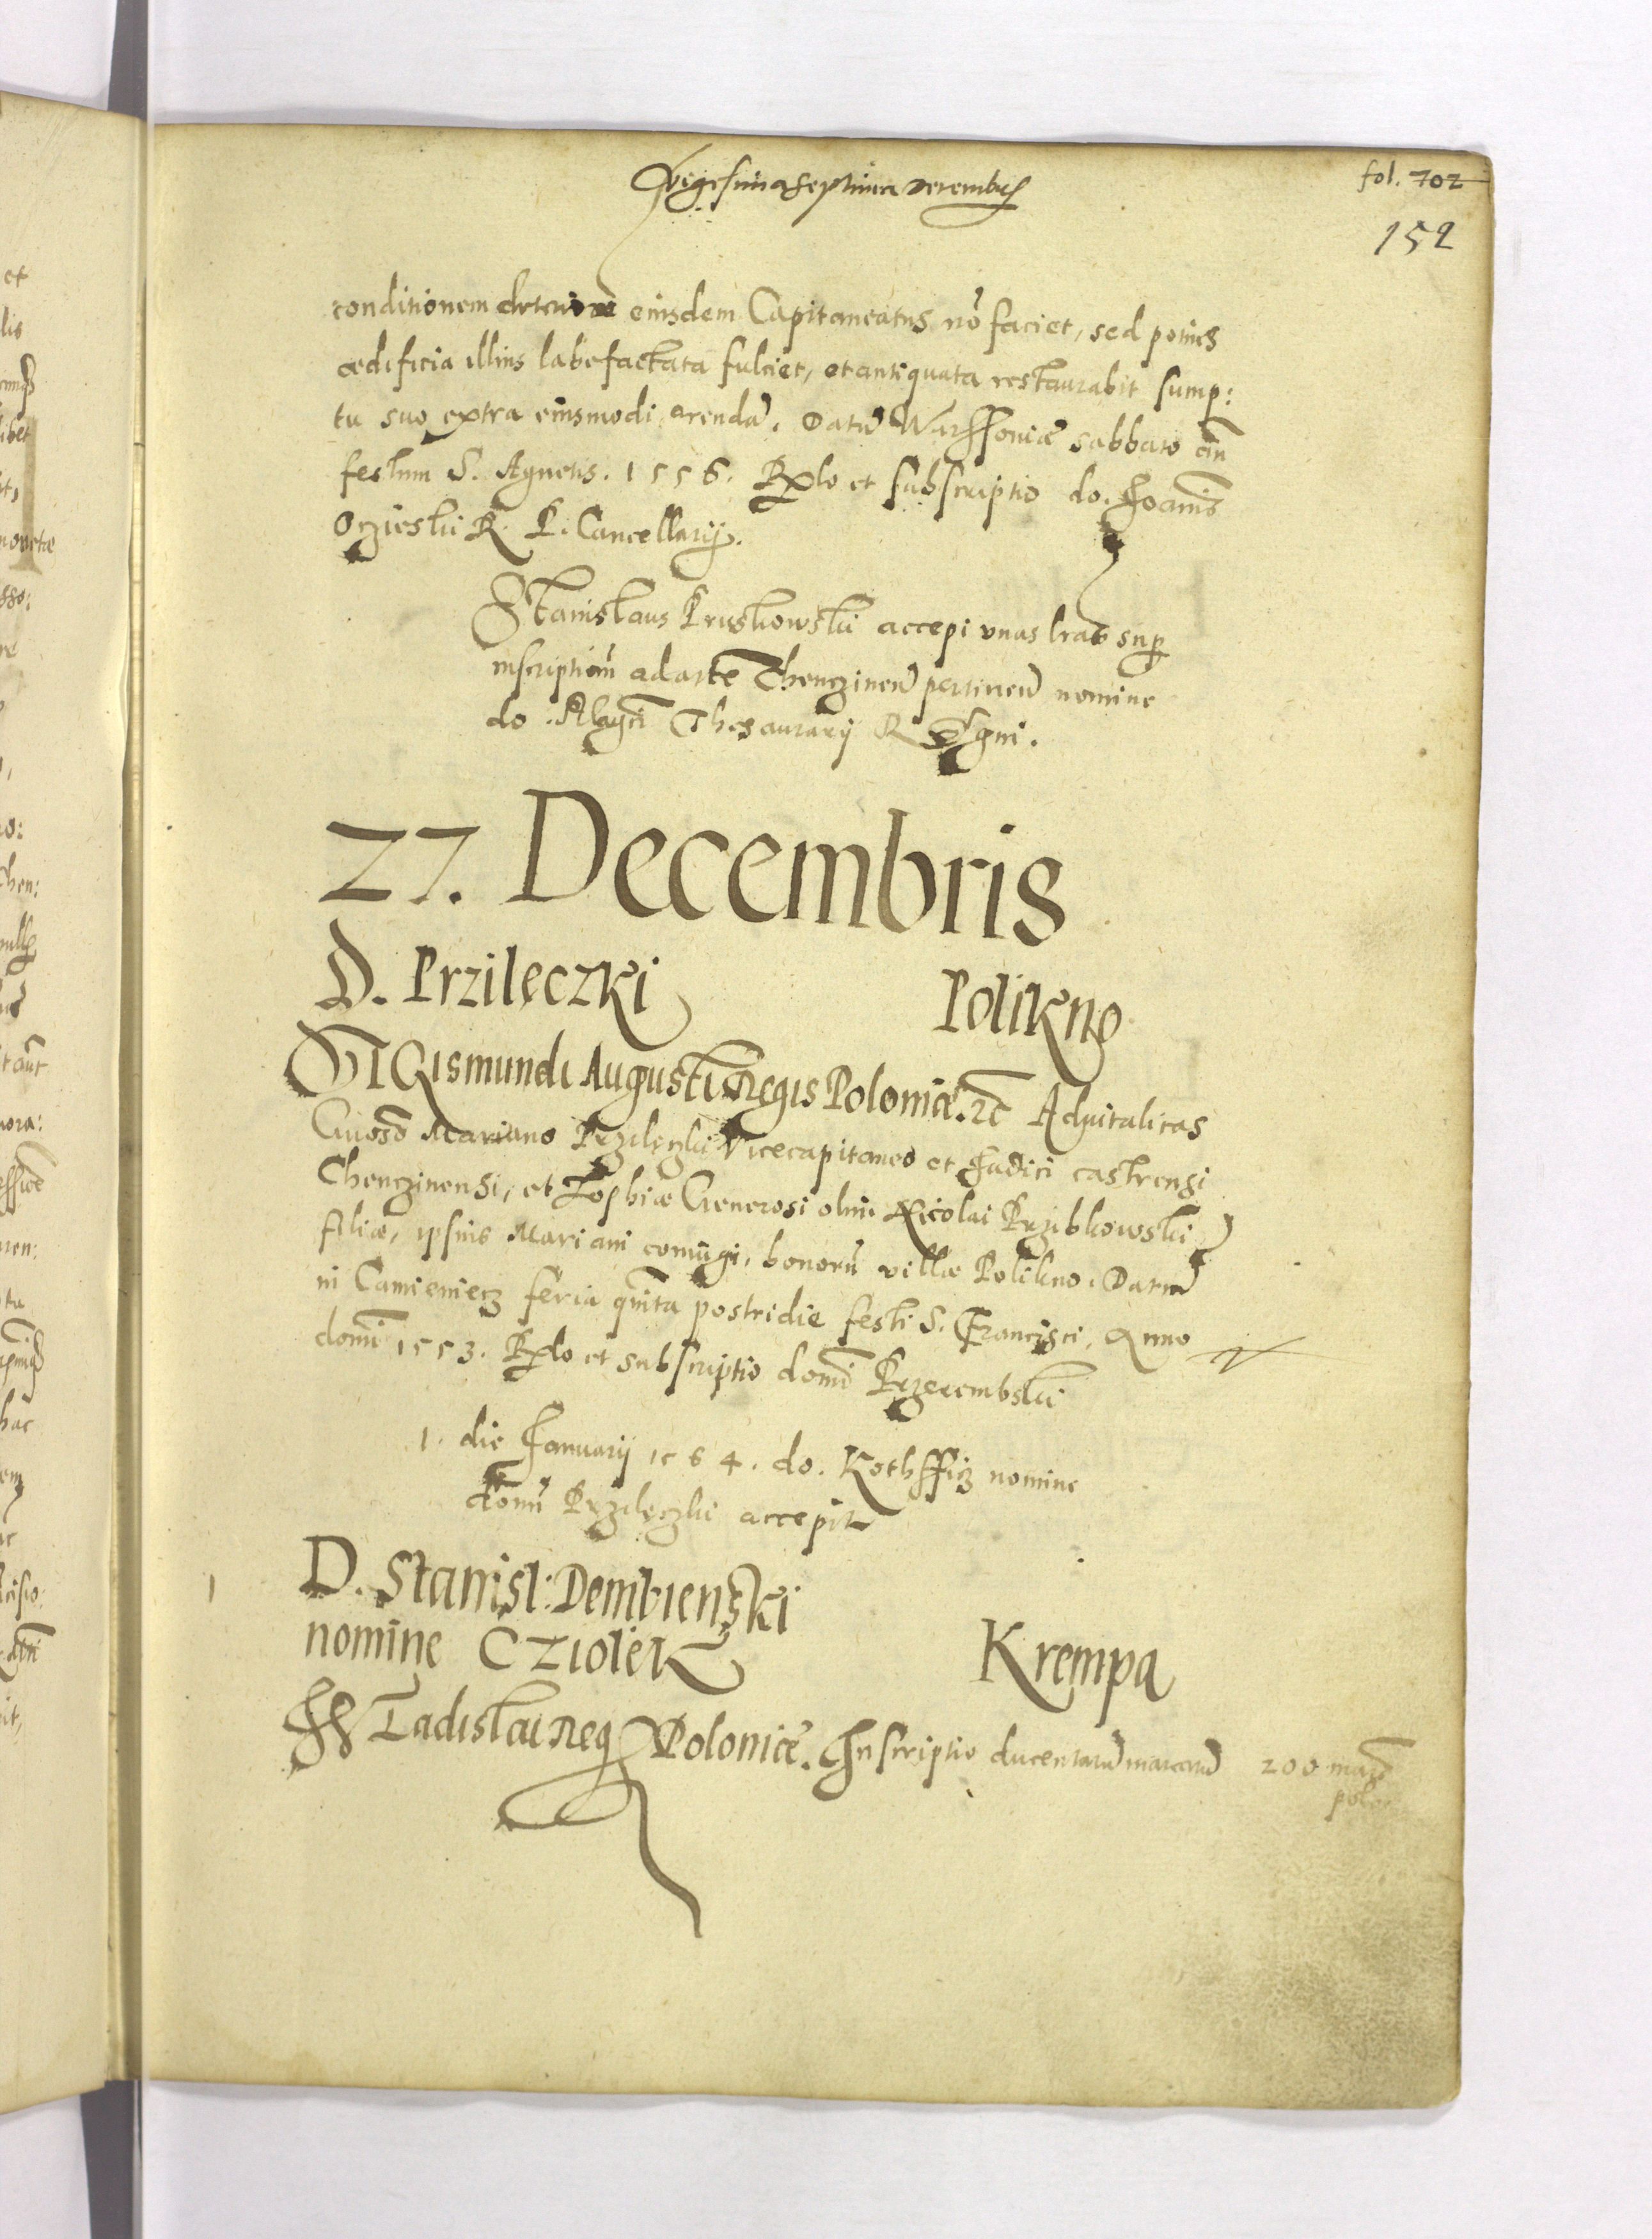 Vigesima septima decembris
fol. 702
152
conditionem deteriorē eiusdem Capitaneatus nō faciet, sed potius
ædificia illius labefactata fulciet, et antiquata restaurabit sump:
tu suo extra eiusmodi arendā. Datū Warssoviæ sabbato an̄
festum S. Agnetis. 1556. Rᵉˡᵒ et subscriptio do. Joañis
Oczieski R. P. Cancellarij.
Stanislaus Pruskowski accepi unas lras sup
inscriptiōū ad arcē Chenczineñ pertineñ nomine
do. Thesaurarij Regni.
27. Decembris
D. Przileczki
Polikno
SIGismundi Augusti Regis Poloniæ. zc̄ Advitalitas
Gnoso Mariano Przilęczki Vicecapitaneo et Judici castrensi
Chenczinensi, et Zophiæ Generosi olim Nicolai Przibkowski
filiæ, ipsius Mariani coniugi, bonorū villæ Polikno. Datū
in Camieniecz feria quīta postridie festi S. Francisci, Anno
domī 1553. Rᵉˡᵒ et subscriptio domī Przerembski
1. die Januarij 1564. do. Kothfficz nomine
domī Przilęczki accepit
D. Stanisl: Dembienski
nomine Cziolek
Krempa
Wladislai Reg Poloniæ. Inscriptio ducentarū marcarū
200 marc
polo